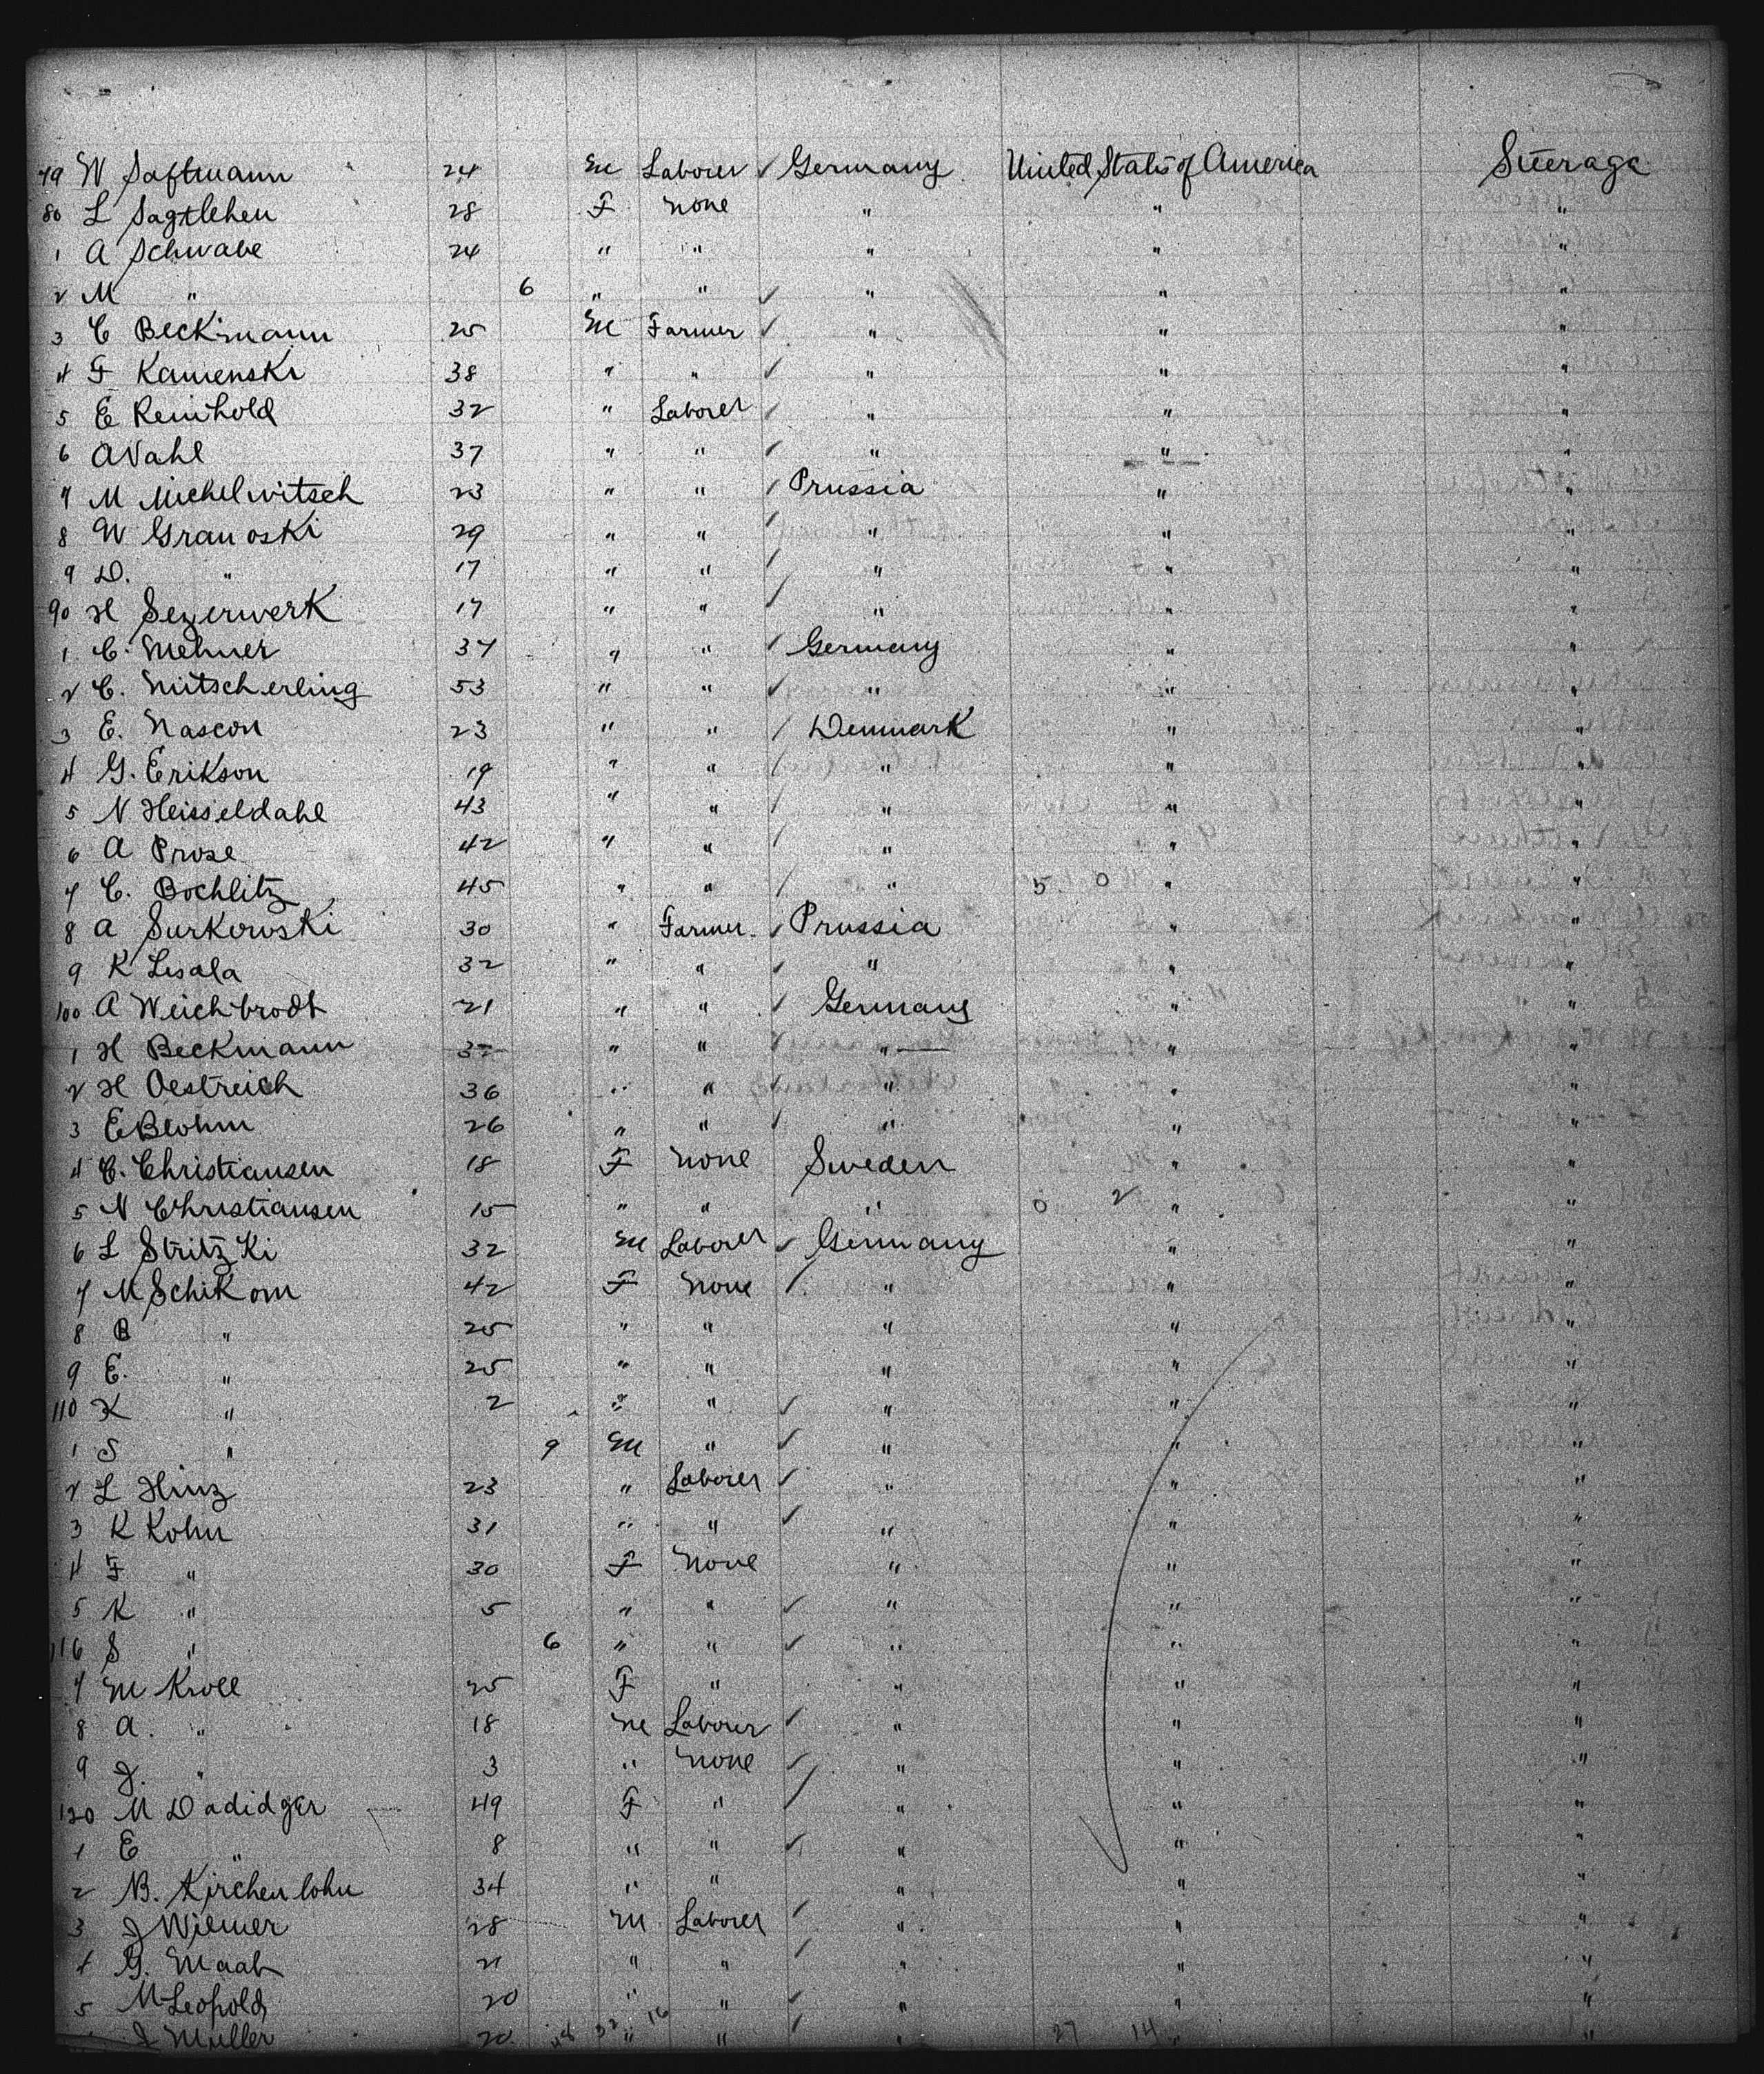 79 W Saftmann 24 M Laborer ✓ Germany United States of America Steerage
80 L Sagtlehen 28 F None " " "
1 A Schwabe 24 " " " " "
2 M " 6 " " ✓ " " "
3 C Beckmann 25 M Farmer ✓ " " "
4 F Kamenski 38 " " ✓ " " "
5 E Reinhold 32 " Laborer ✓ " " "
6 A Vahl 37 " " ✓ " " "
7 M Michelwitsch 23 " " ✓ Prussia " "
8 W Granoski 29 " " ✓ " " "
9 D. " 17 " " ✓ " " "
90 H Sezerwerk 17 " " ✓ " " "
1 C. Mehner 37 " " ✓ Germany " "
2 C. Mitscherling 53 " " ✓ " " "
3 E. Nascon 23 " " ✓ Denmark " "
4 G. Erikson 19 " " ✓ " " "
5 N Heisseldahl 43 " " ✓ " " "
6 A Prose 42 " " ✓ " " "
7 C. Bochlitz 45 " " ✓ " 5 0 " "
8 A Surkowski 30 " Farmer ✓ Prussia " "
9 K Lesala 32 " " ✓ " " "
100 A Weichbrodt 21 " " ✓ Germany " "
1 H Beckmann 32 " " ✓ " " "
2 H Oestreich 36 " " ✓ " " "
3 E Blohm 26 " " ✓ " " "
4 C. Christiansen 18 F None Sweden " "
5 N Christiansen 15 " " " 0 2 " "
6 L Stritzki 32 M Laborer ✓ Germany " "
7 M Schikom 42 F None ✓ " " "
8 B " 25 " " " " "
9 E. " 25 " " " " "
110 K " 2 " " ✓ " " "
1 S " 9 M " ✓ " " "
2 L Hinz 23 " Laborer ✓ " " "
3 K Kohn 31 " " ✓ " " "
4 F " 30 F None " " "
5 K " 5 " " ✓ " " "
116 S " 6 " " ✓ " " "
7 M Kroll 25 F " " " "
8 A. " 18 M Laborer ✓ " " "
9 J. " 3 " None ✓ " " "
120 M Dadidger 49 F " ✓ " " "
1 E " 8 " " ✓ " " "
2 B. Kirchenlohn 34 " " " " "
3 J Wiemer 28 M Laborer ✓ " " "
4 G. Maab 21 " " ✓ " " "
5 M Leopold 20 " " ✓ " " "
J Muller 20 48 32 " 16 " ✓ " 27 14 " "